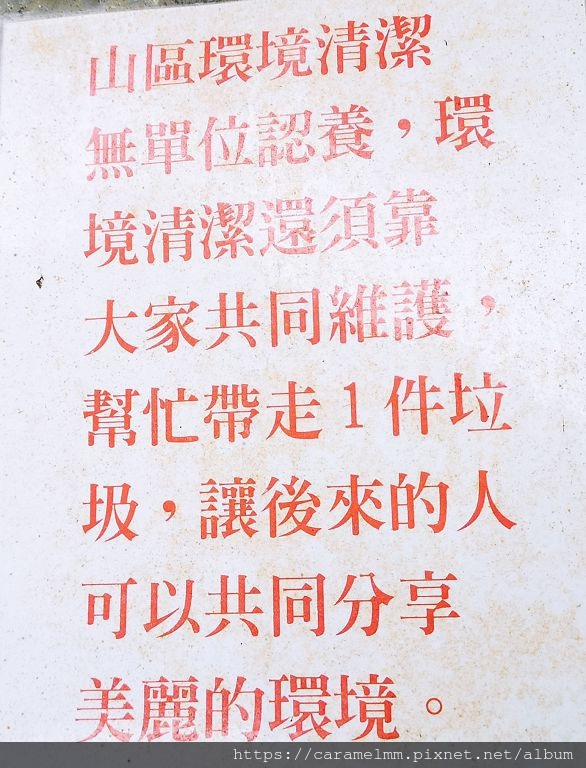 山區環境清潔
無單位認養，環
境清潔還須靠
大家共同維護，
幫忙帶走1件垃
圾，讓後來的人
可以共同分享
美麗的環境。
https://caramelmm.pixnet.net/album